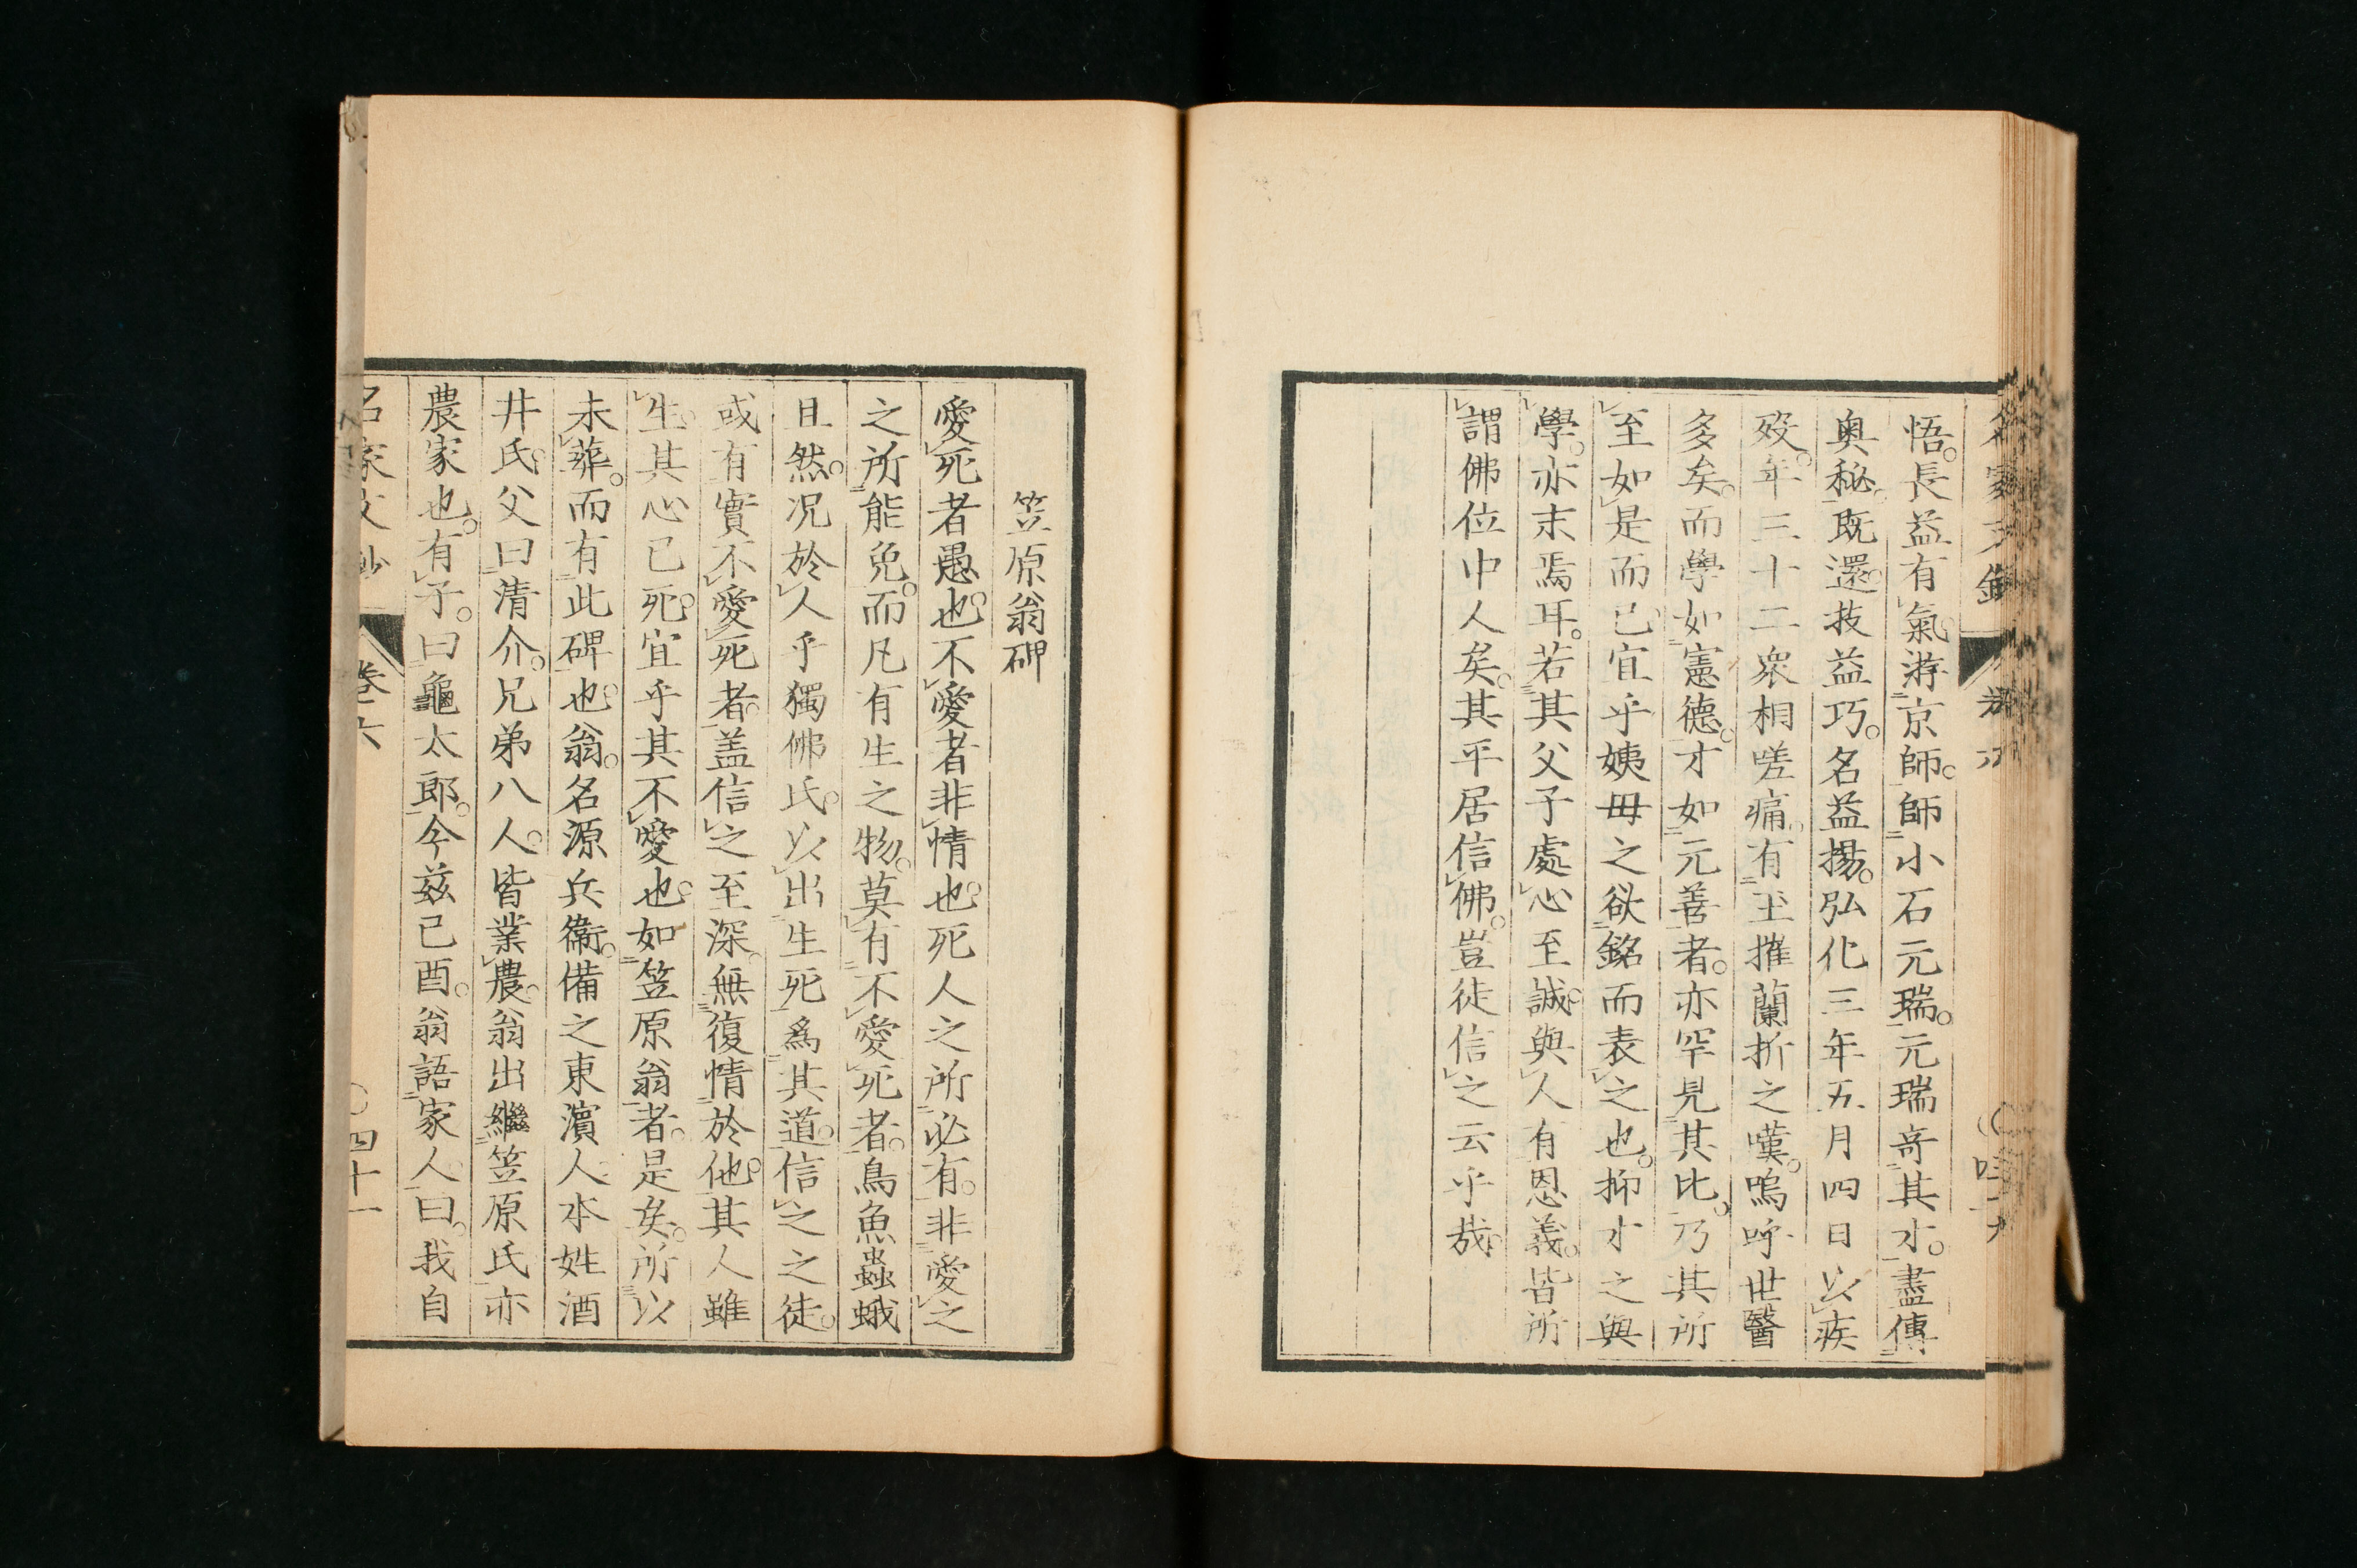 悟。長益有氣。游京師。師小石元瑞。元瑞奇其才。盡傳
奥秘。既還。技益巧。名益揚。弘化三年五月四日以疾
歿。年三十二衆相嗟痛。有玉摧蘭折之嘆。嗚呼世醫
多矣。而學如憲德。才如元善者。亦罕見其比。乃其所
至如是而已。宜乎姨母之欲銘而表之也。抑才之與
學。亦末焉耳。若其父子處心至誠。與人有恩義。皆所
謂佛位中人矣。其平居信佛。豈徒信之云乎哉。
笠原翁碑
愛死者愚也。不愛者非情也。死人之所必有。非愛之
之所能免。而凡有生之物。莫有不愛死者。鳥魚蟲蛾
且然。況於人乎獨佛氏。以出生死爲其道。信之之徒。
或有實不愛死者。盖信之至深。無復情於他。其人雖
生。其心已死。宜乎其不愛也。如笠原翁者。是矣。所以
未葬。而有此碑也。翁。名源兵衞。備之東濵人。本姓酒
井氏。父曰清介。兄弟八人。皆業農。翁出繼笠原氏亦
農家也。有子。曰龜太郎。今茲己酉。翁語家人曰。我自
名家文鈔
卷六
〇四十一